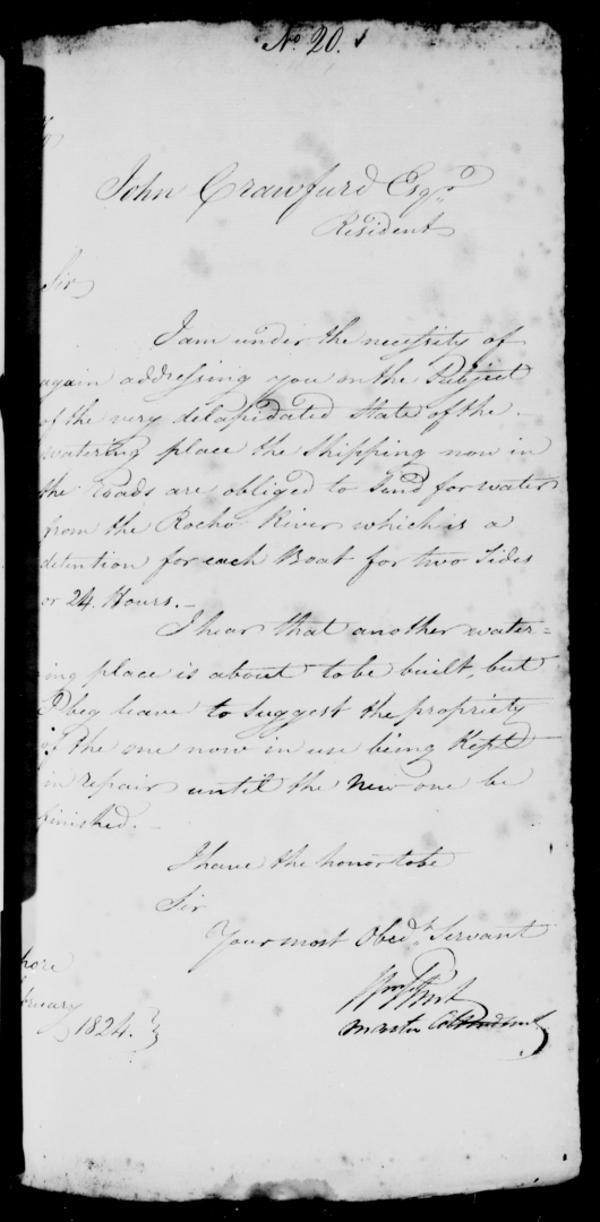 No. 20.
John Crawfurd Esqr.
Resident
Sir
I am under the necessity of
again addressing you on the Subject
of the very delapidated State of the
watering place the shipping now in
the roads are obliged to Send for water
from the Rocho River which is a
detention for each Boat for two Tides
or 24 Hours.
I hear that another water=
ing place is about to be built, but
I beg leave to Suggest the propriety
of the one now in use being Kept
in repair until the New one be
finished.
I have the honor to be
Sir
Your most Obedt. Servant
Master
pore
bruary
1824.